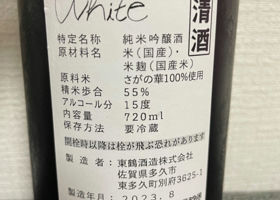 White
清酒
特定名称 純米吟醸酒
原材料名 米(国産)・
米麹(国産米)
原料米 さがの華100%使用
精米歩合 55%
アルコール分 15度
内容量 720ml
保存方法 要冷蔵
開栓時以後は栓が飛ぶ恐れがあります
製造者:東鶴酒造株式会社
佐賀県多久市
東多久町別府3625-1
製造年月 2023.8